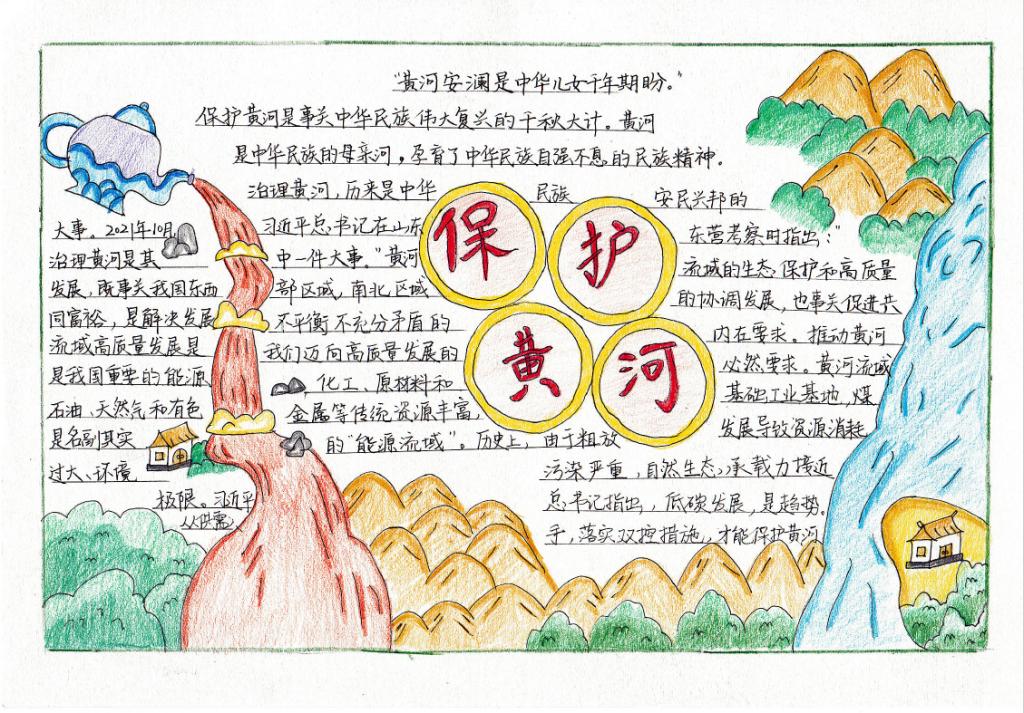 "黄河安澜是中华儿女千年期盼。"
保护黄河是事关中华民族伟大复兴的千秋大计。黄河
是中华民族的母亲河，孕育了中华民族自强不息的民族精神。
治理黄河，历来是中华 民族 安民兴邦的
大事。2021年10月 习近平总书记在山东 东营考察时指出："
治理黄河是其 中一件大事。"黄河 流域的生态保护和高质量
发展，既事关我国东西 部区域，南北区域 的协调发展，也事关促进共
同富裕，是解决发展 不平衡不充分矛盾的 内在要求。推动黄河
流域高质量发展是 我们迈向高质量发展的 必然要求。黄河流域
是我国重要的能源 、化工、原材料和 基础工业基地，煤
石油、天然气和有色 金属等传统资源丰富， 发展导致资源消耗
是名副其实 的"能源流域"。历史上，由于粗放
过大、环境 污染严重，自然生态承载力接近
极限。习近平 总书记指出，低碳发展，是趋势。
从供需 手，落实双控措施，才能保护黄河
保护
黄河